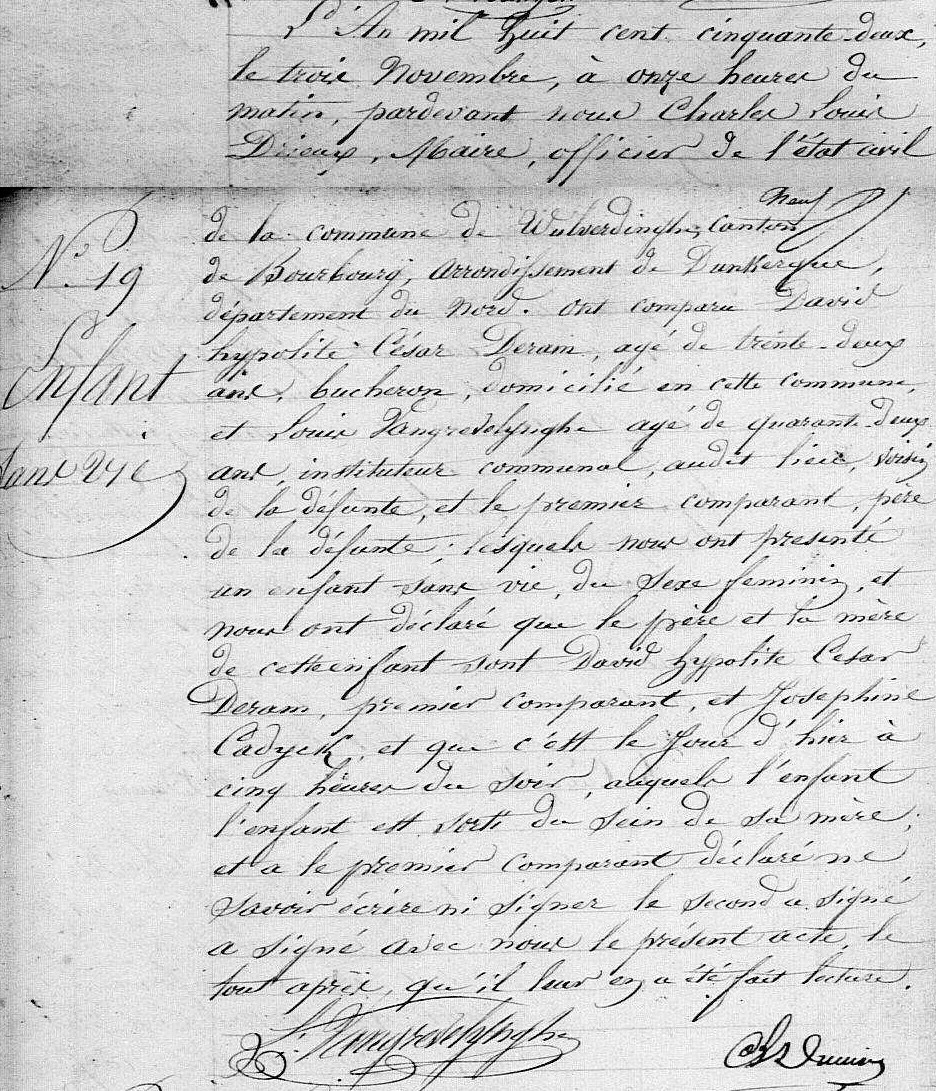 L'An mil huit cent cinquante-deux,
le trois Novembre, à onze heures du
matin, pardevant nous Charles Louis
Maire, officier de l'état civil
de la commune de Wulverdinghe, Canton
de Bourbourg, arrondissement de Dunkerque,
département du Nord. ont comparu David
hypolite César Deram, agé de trente-deux
ans, bucheron, domicilié en cette commune,
et Louis Vangrevelynghe agé de quarante-deux
ans, instituteur communal, audit lieu, voisin
de la défunte, et le premier comparant, père
de la défunte; lesquels nous ont presenté
un enfant sans vie, du sexe feminin, et
nous ont déclaré que le père et la mère
de cette enfant sont David hypolite Cesar
Deram, premier comparant, et Josephine
Cadyck, et que c'est le jour d'hier à
cinq heures du soir, auquels l'enfant
l'enfant est sorti du sein de sa mère;
et a le premier comparant déclaré ne
savoir écrire ni signer le second a signé
a signé avec nous le présent acte, le
tout après, qu'il leur en a été fait lecture.
N.° 19
Enfant
sans vie
L. Vangrevelynghe